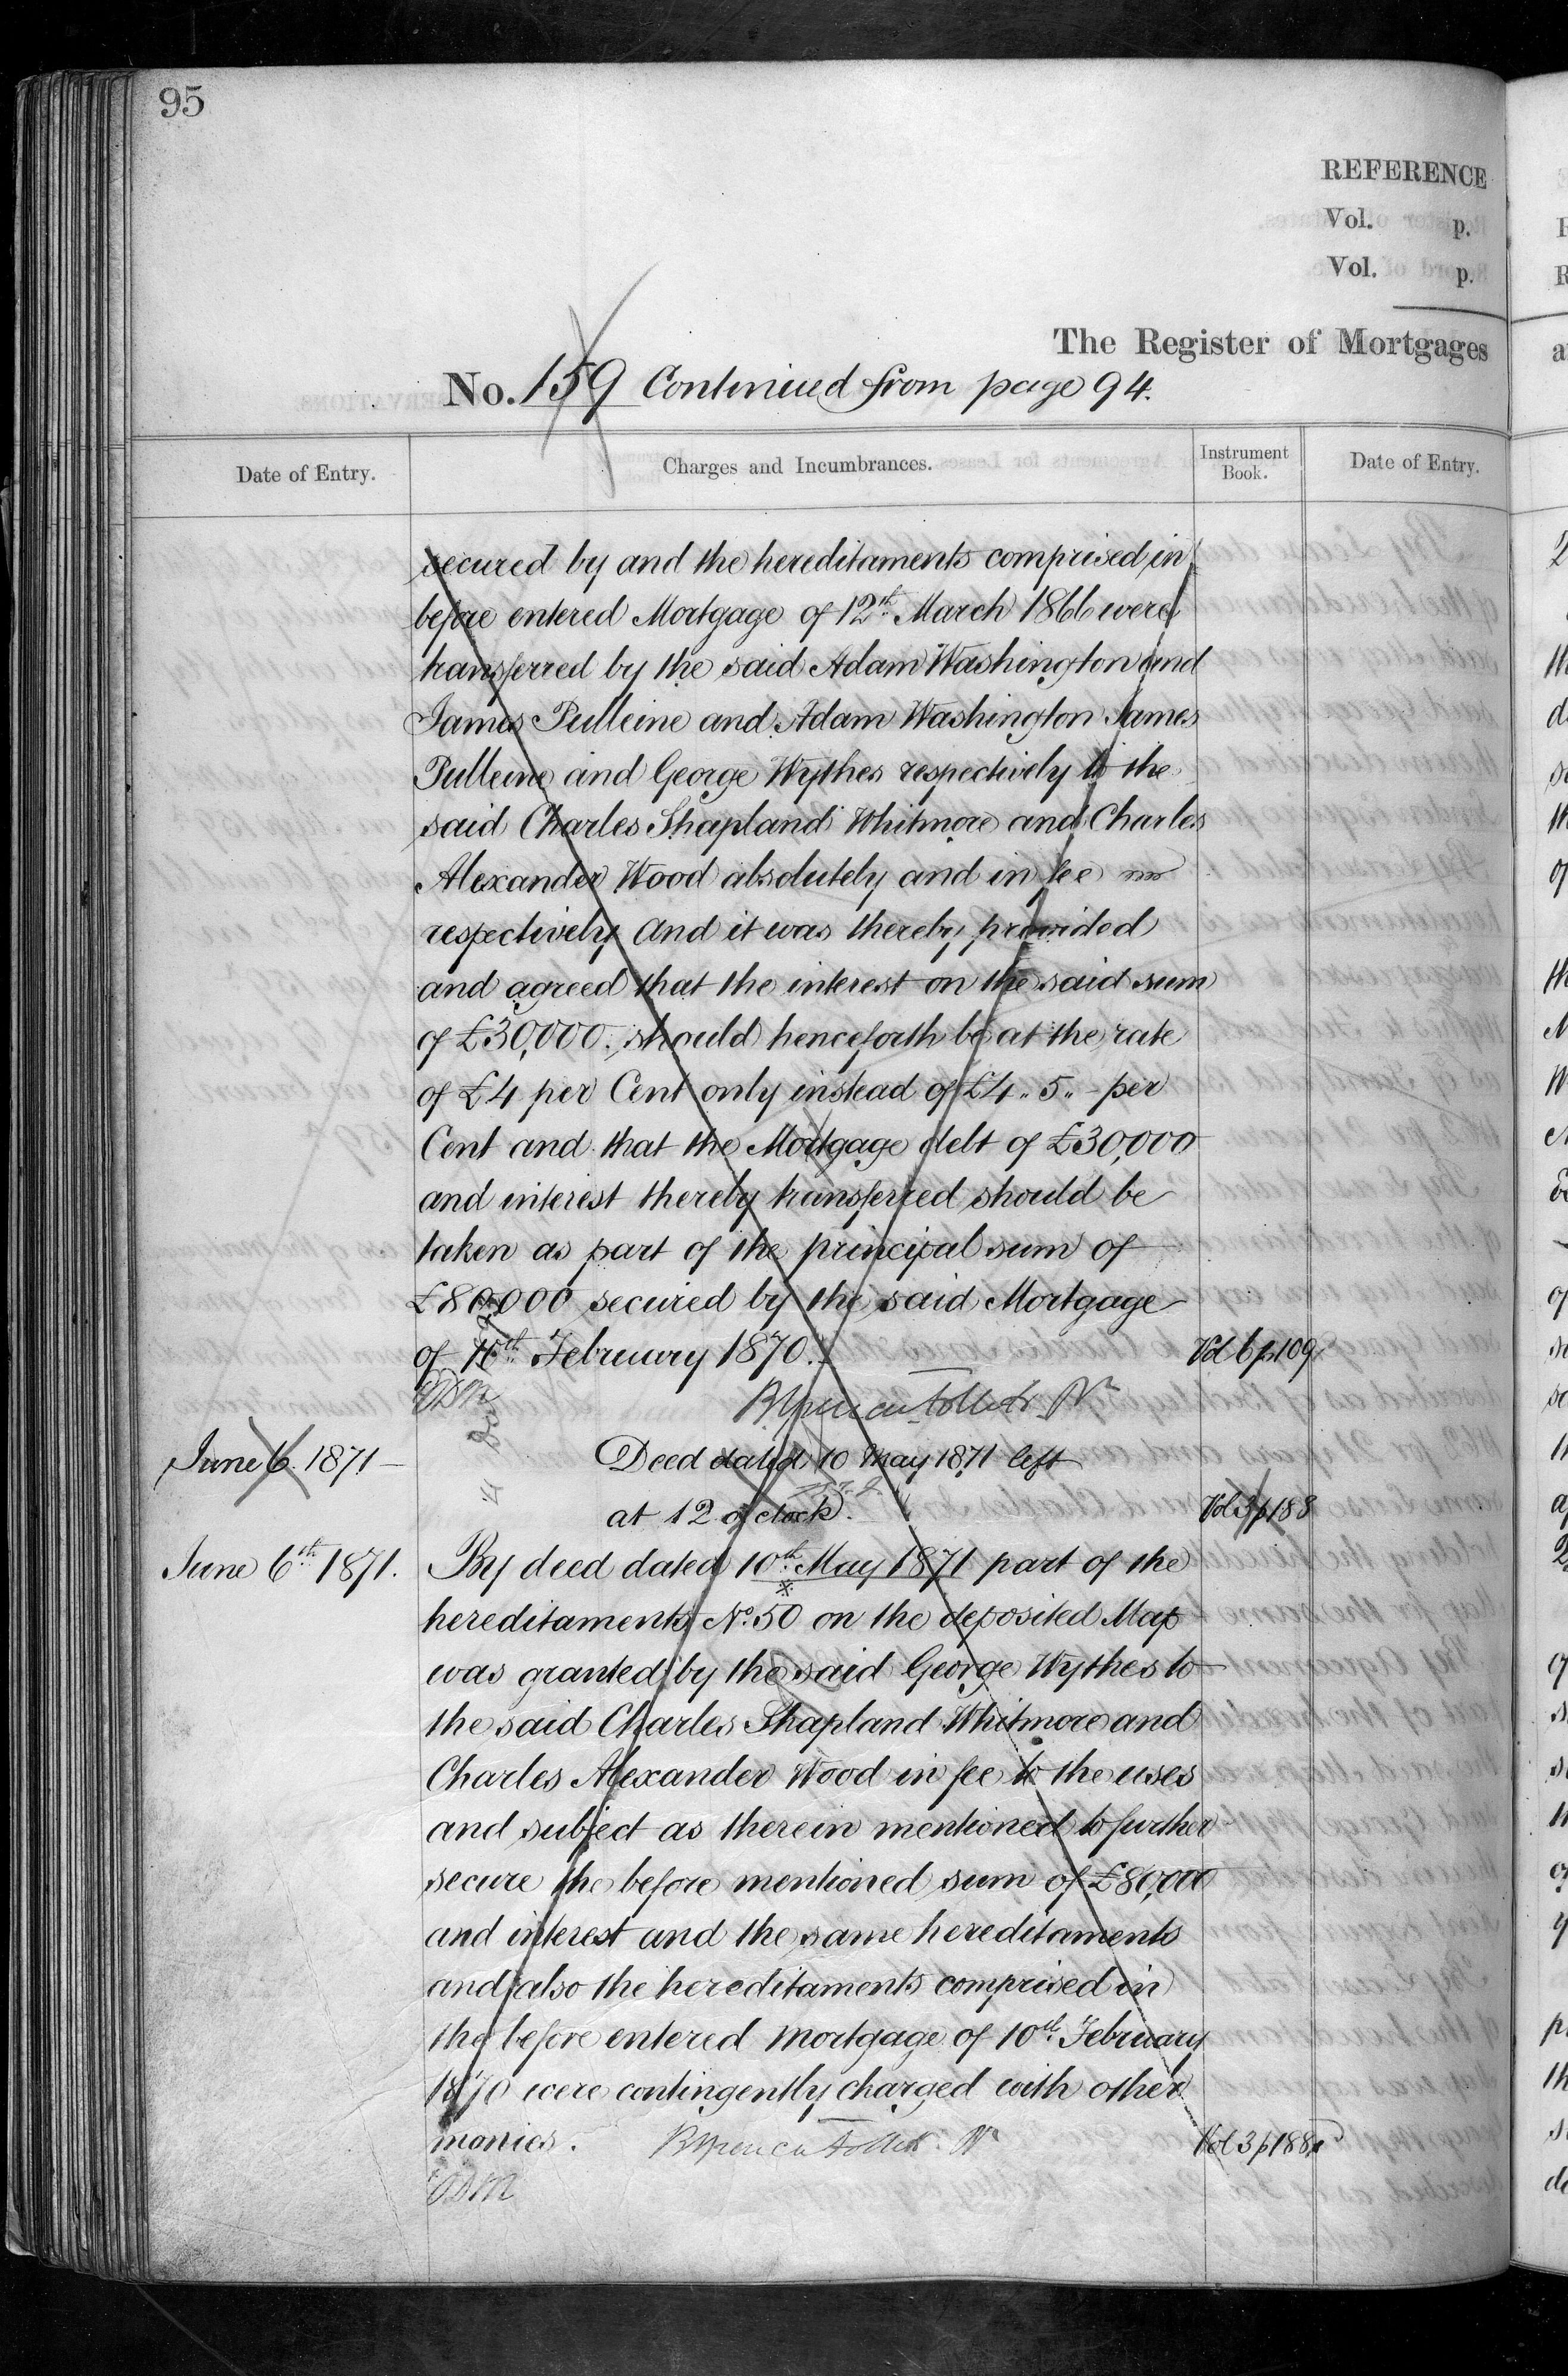 95
REFERENCE
Vol. p.
Vol. p.
The Register of Mortgages
No. 159 Continued from page 94.
Date of Entry. Charges and Incumbrances. Instrument Book. Date of Entry.
secured by and the hereditaments comprised in
before entered Mortgage of 12th March 1866 were
transferred by the said Adam Washington and
James Pulleine and Adam Washington James
Pulleine and George Wythes respectively to the
said Charles Shapland Whitmore and Charles
Alexander Wood absolutely and in fee
respectively And it was thereby provided
and agreed that the interest on the said sum
of £30,000. should henceforth be at the rate
of £4 per Cent only instead of £4 „ 5 „ - per
Cent and that the Mortgage debt of £30,000
and interest thereby transferred should be
taken as part of the principal sum of
£80,000 secured by the said Mortgage
of 10th February 1870. Vol 6 p 109
June 6. 1871 - Deed dated 10 May 1871 left
at 12 o'clock. Vol 3 p 188
June 6th 1871. By deed dated 10th May 1871 part of the
*
hereditaments No. 50 on the deposited Map
was granted by the said George Wythes to
the said Charles Shapland Whitmore and
Charles Alexander Wood in fee to the uses
and subject as therein mentioned to further
secure the before mentioned sum of £80,000
and interest and the same hereditaments
and also the hereditaments comprised in
the before entered mortgage of 10th February
1870 were contingently charged with other
monies. Vol 3 p 188